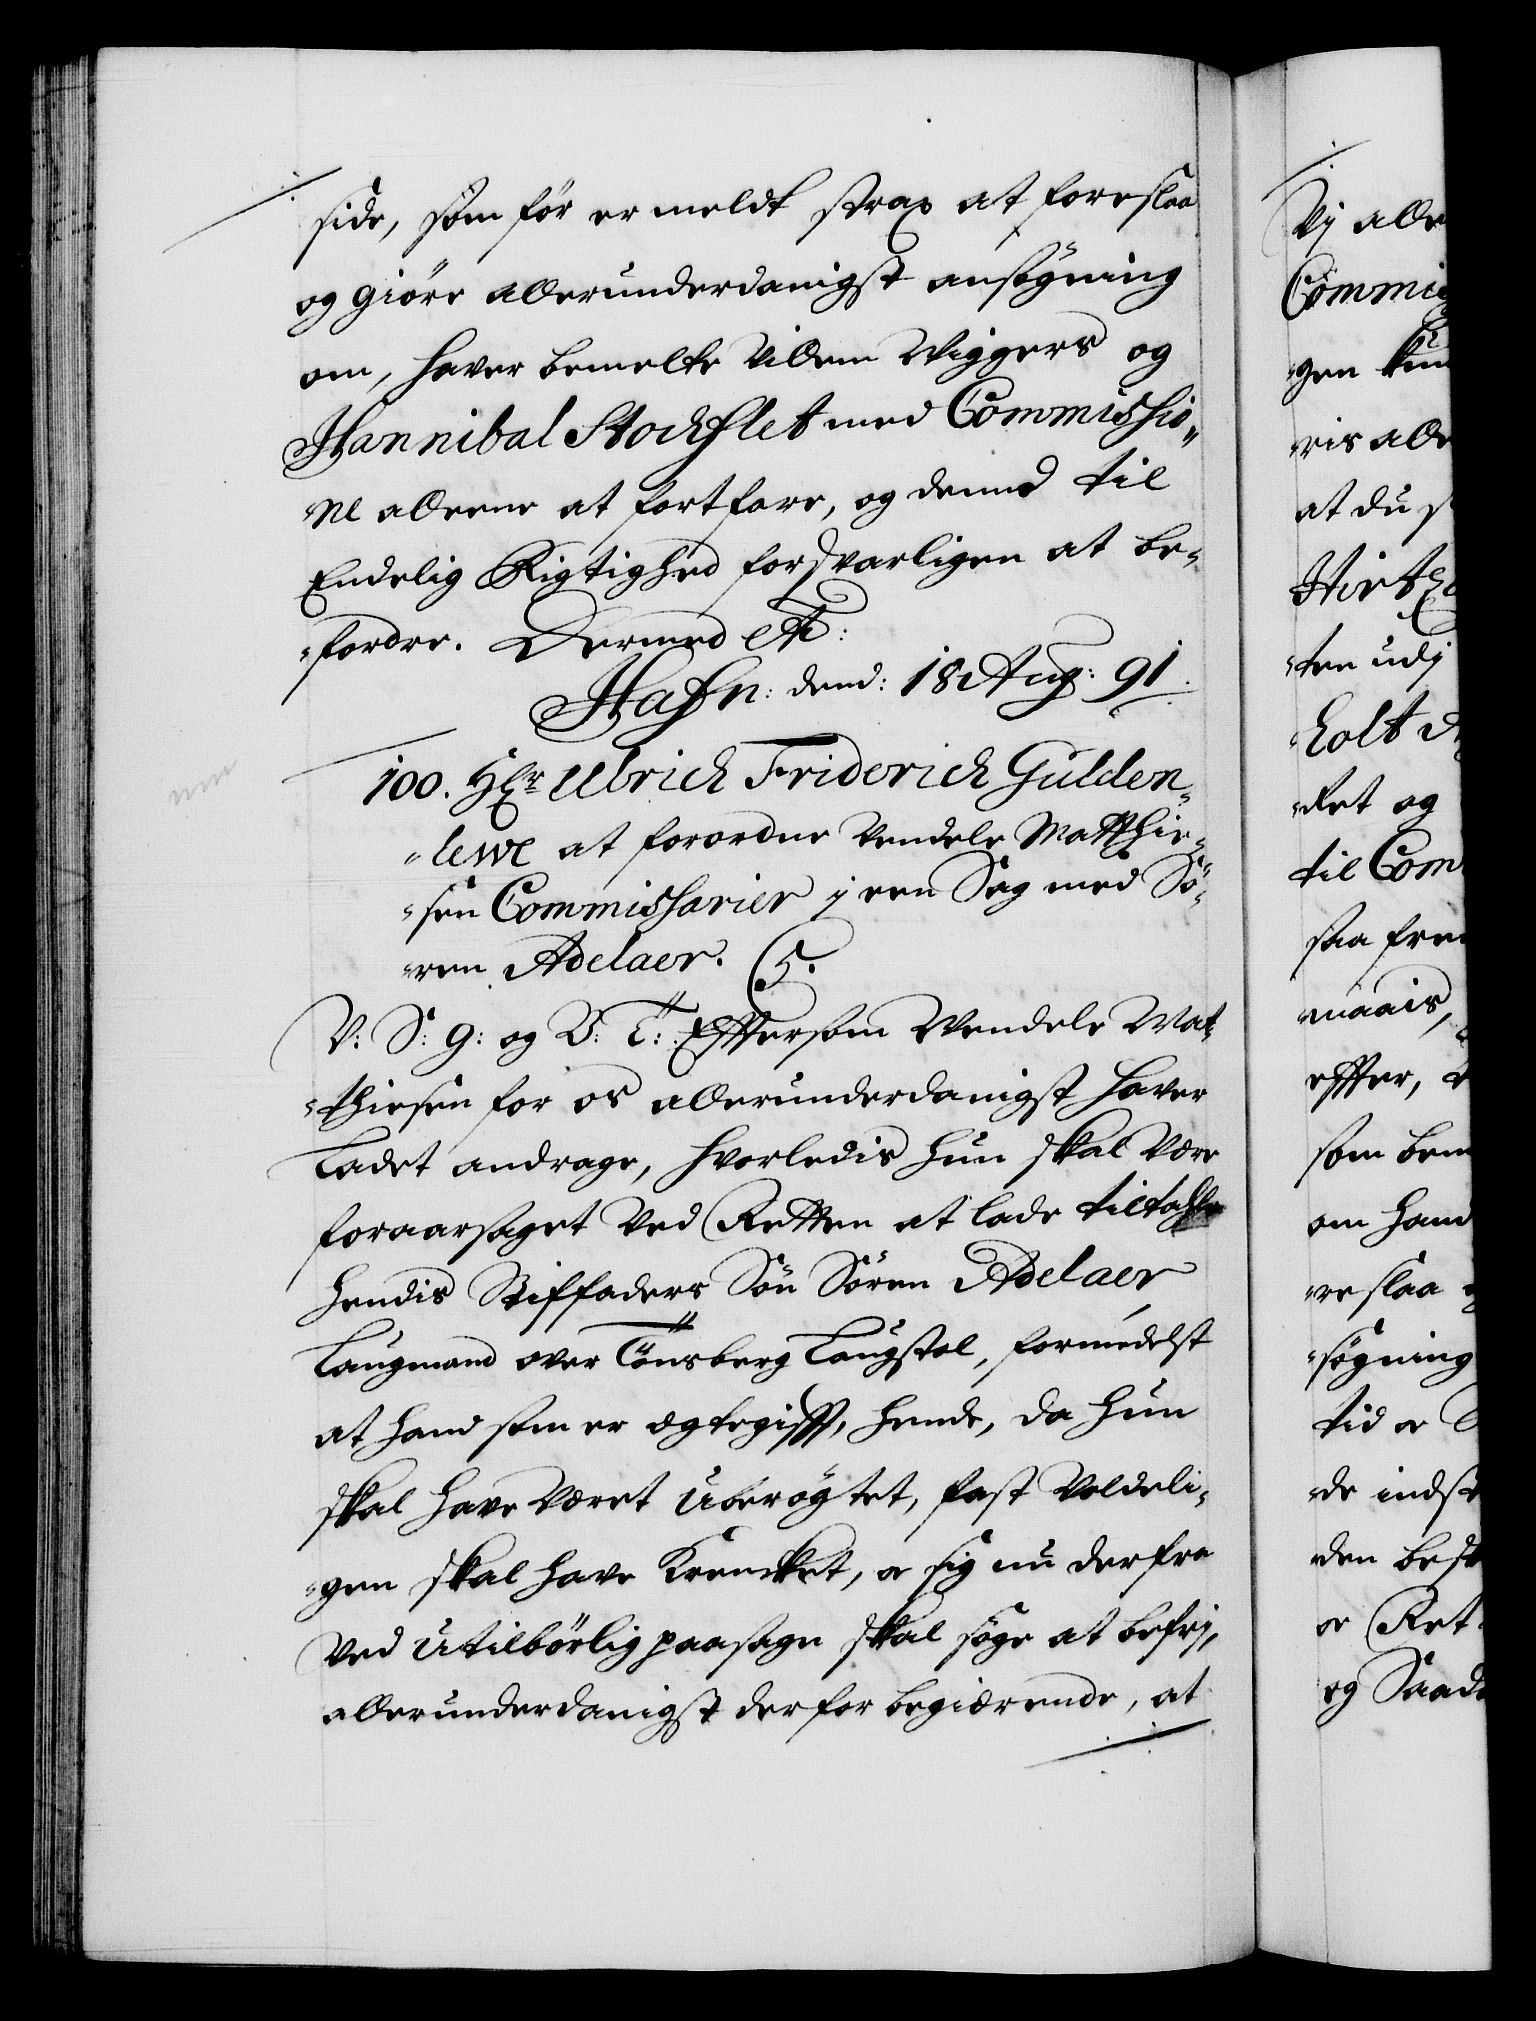 side, som før er meldt strax at foreslaa
og giöre allerunderdanigst ansøgning
om, haver bemelte Villem Wiggers og
Hannibal Stochflet med Commissio„
„nen alleene at fortfare, og dend til
Endelig Rigtighed forsvarligen at be„
„fordre. Dermed etc:
Hafn: dend: 18 Aug: 91.
100. Hr Ulrich Friderich Gulden„
„lewe at forordne Vendele Matthie„
„sen Commissarier i een Sag med Sö„
„ren Adelaer.
V: S: g: og V: T: Eftersom Wendele Mat„
„thiesen for os allerunderdanigst haver
Ladet andrage, hvorledis hun skal være
foraarsaget ved Retten at lade tiltahle
hendis Stiffaders Sön Sören Adelaer
Laugmand over Tönsberg Laugstol, formedelst
at hand som er ægtegifft, hende, da hun
skal have været uberøgtet, fast Voldeli„
„gen skal have Krencket, og sig nu derfra
ved utilbörlig paasagn skal søge at befrij,
allerunderdanigst derfor begiærende, at
Vij alle
Commis
„gen kun
„ris alle
at du s
Hirt
„ten udj
holt
„Ret og
til Com
saa frem
maais,
effter,
som bem
om hand
„re slaa
„søgning
tid
de indst
den besk
Ret
og Saad